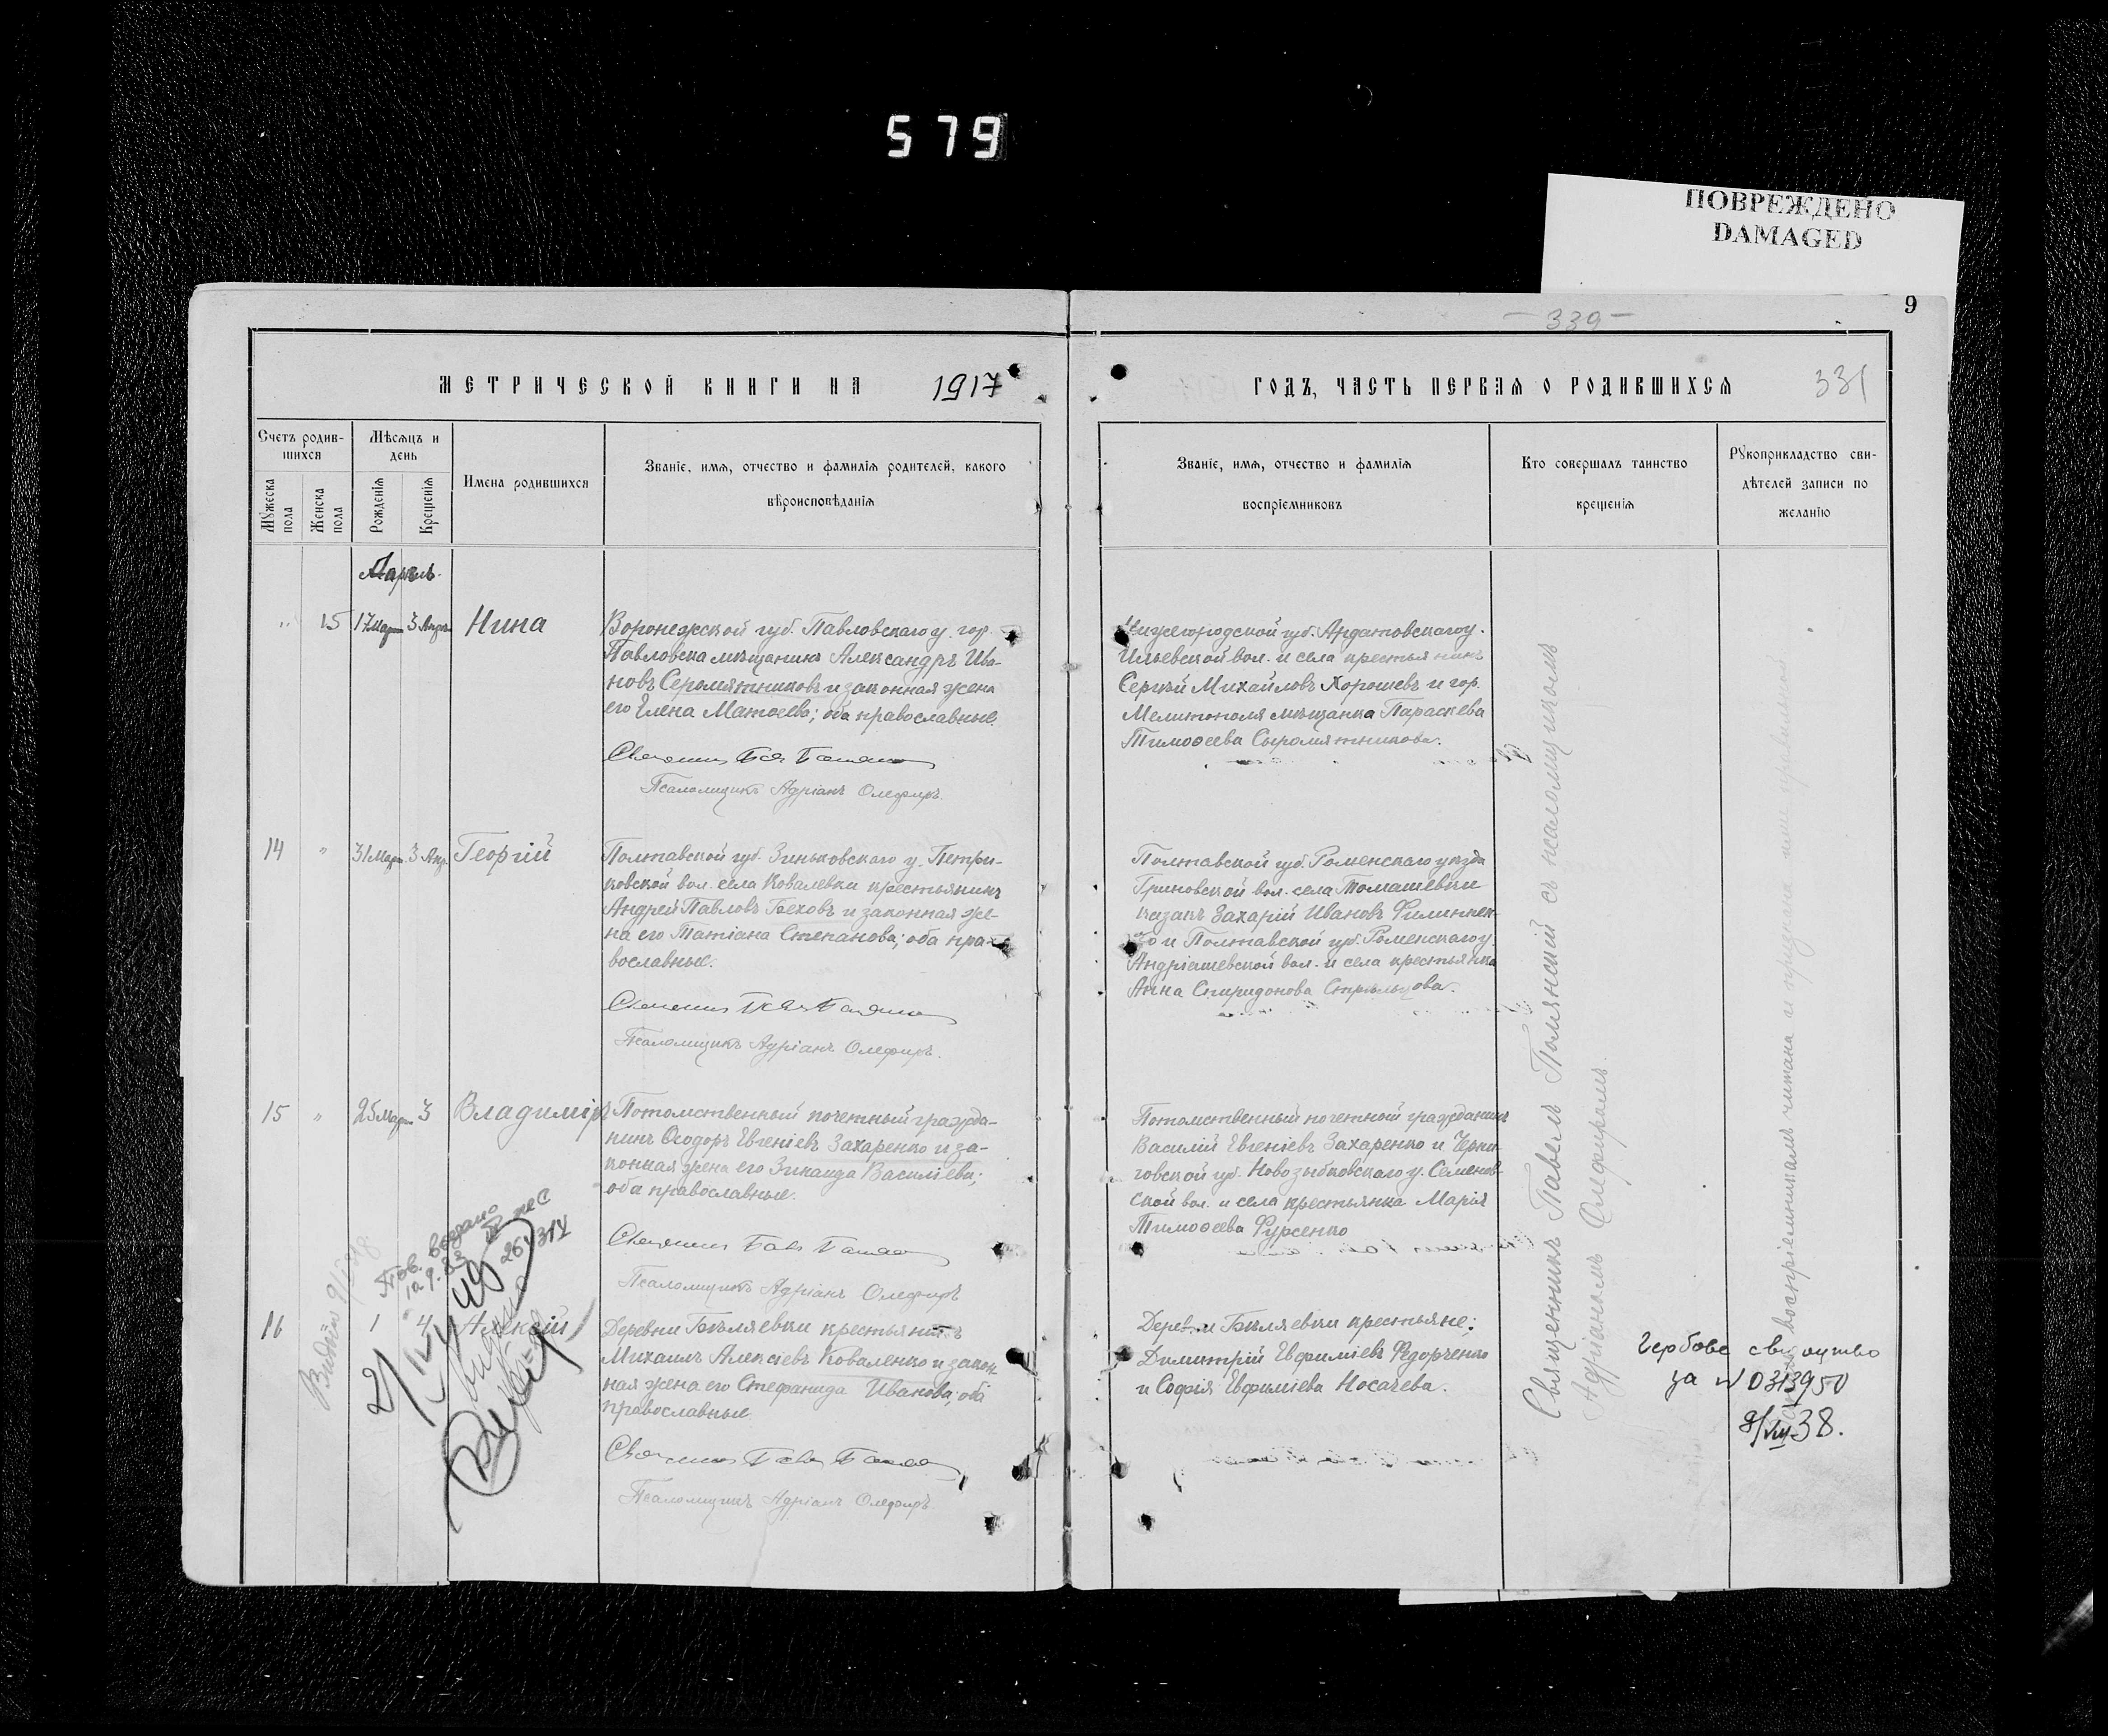 579
ПОВРЕЖДЕНО
DAMAGED
9
— 339 —
МЕТРИЧЕСКОЙ КНИГИ НА 1917
ГОДЪ, ЧАСТЬ ПЕРВАЯ О РОДИВШИХСЯ
331
Счетъ родив-
шихся
Мужеска пола
Женска пола
Мѣсяцъ и
день
Рожденія
Крещенія
Имена родившихся
Званіе, имя, отчество и фамилія родителей, какого
вѣроисповѣданія
Званіе, имя, отчество и фамилія
воспріемниковъ
Кто совершалъ таинство
крещенія
Рукоприкладство сви-
дѣтелей записи по
желанію
Апрель.
" 15 17 Мар 3 Апр Нина
Воронежской губ. Павловскаго у. гор.
Павловска мѣщанинъ Александръ Ива-
новъ Серомятниковъ и законная жена
его Елена Матѳеева; оба православные.
Псаломщикъ Адріанъ Олефиръ.
Нижегородской губ. Ардатовскаго у.
Ильевской вол. и села крестьянинъ
Сергѣй Михайловъ Хорошевъ и гор.
Мелитополя мѣщанка Параскева
Тимоѳеева Сыромятникова.
14 " 31 Мар. 3 Апр. Георгій
Полтавской губ. Зиньковскаго у. Петри-
ковской вол. села Ковалевки крестьянинъ
Андрей Павловъ Гѣховъ и законная же-
на его Татіана Степанова; оба пра-
вославные.
Псаломщикъ Адріанъ Олефиръ.
Полтавской губ. Роменскаго уѣзда
Гриновской вол. села Томашевки
казакъ Захарій Ивановъ Филиппен-
ко и Полтавской губ. Роменскаго у.
Андріашевской вол. и села крестьянка
Анна Спиридонова Стрѣльцова.
15 " 25 Мар 3 Владиміръ
Потомственный почетный гражда-
нинъ Ѳеодоръ Евгеніевъ Захаренко и за-
конная жена его Зинаида Василіева;
оба православные.
Псаломщикъ Адріанъ Олефиръ
Потомственный почетный гражданинъ
Василій Евгеніевъ Захаренко и Черни-
говской губ. Новозыбковскаго у. Семенов-
ской вол. и села крестьянка Марія
Тимоѳеева Фурсенко
16 1 4 Алексій
Деревни Бѣляевки крестьянинъ
Михаилъ Алексіевъ Коваленко и закон-
ная жена его Стефанида Иванова; оба
православные.
Псаломщикъ Адріанъ Олефиръ
Деревни Бѣляевки крестьяне:
Димитрій Евфиміевъ Федорченко
и Софія Евфиміева Носачева.
Священникъ Павелъ Полянскій съ псаломщикомъ
Адріаномъ Олефиромъ.
воспріемникамъ читана и признана ими правильной
Гербове свидоцтво
за № 0313950
8/VIII 38.